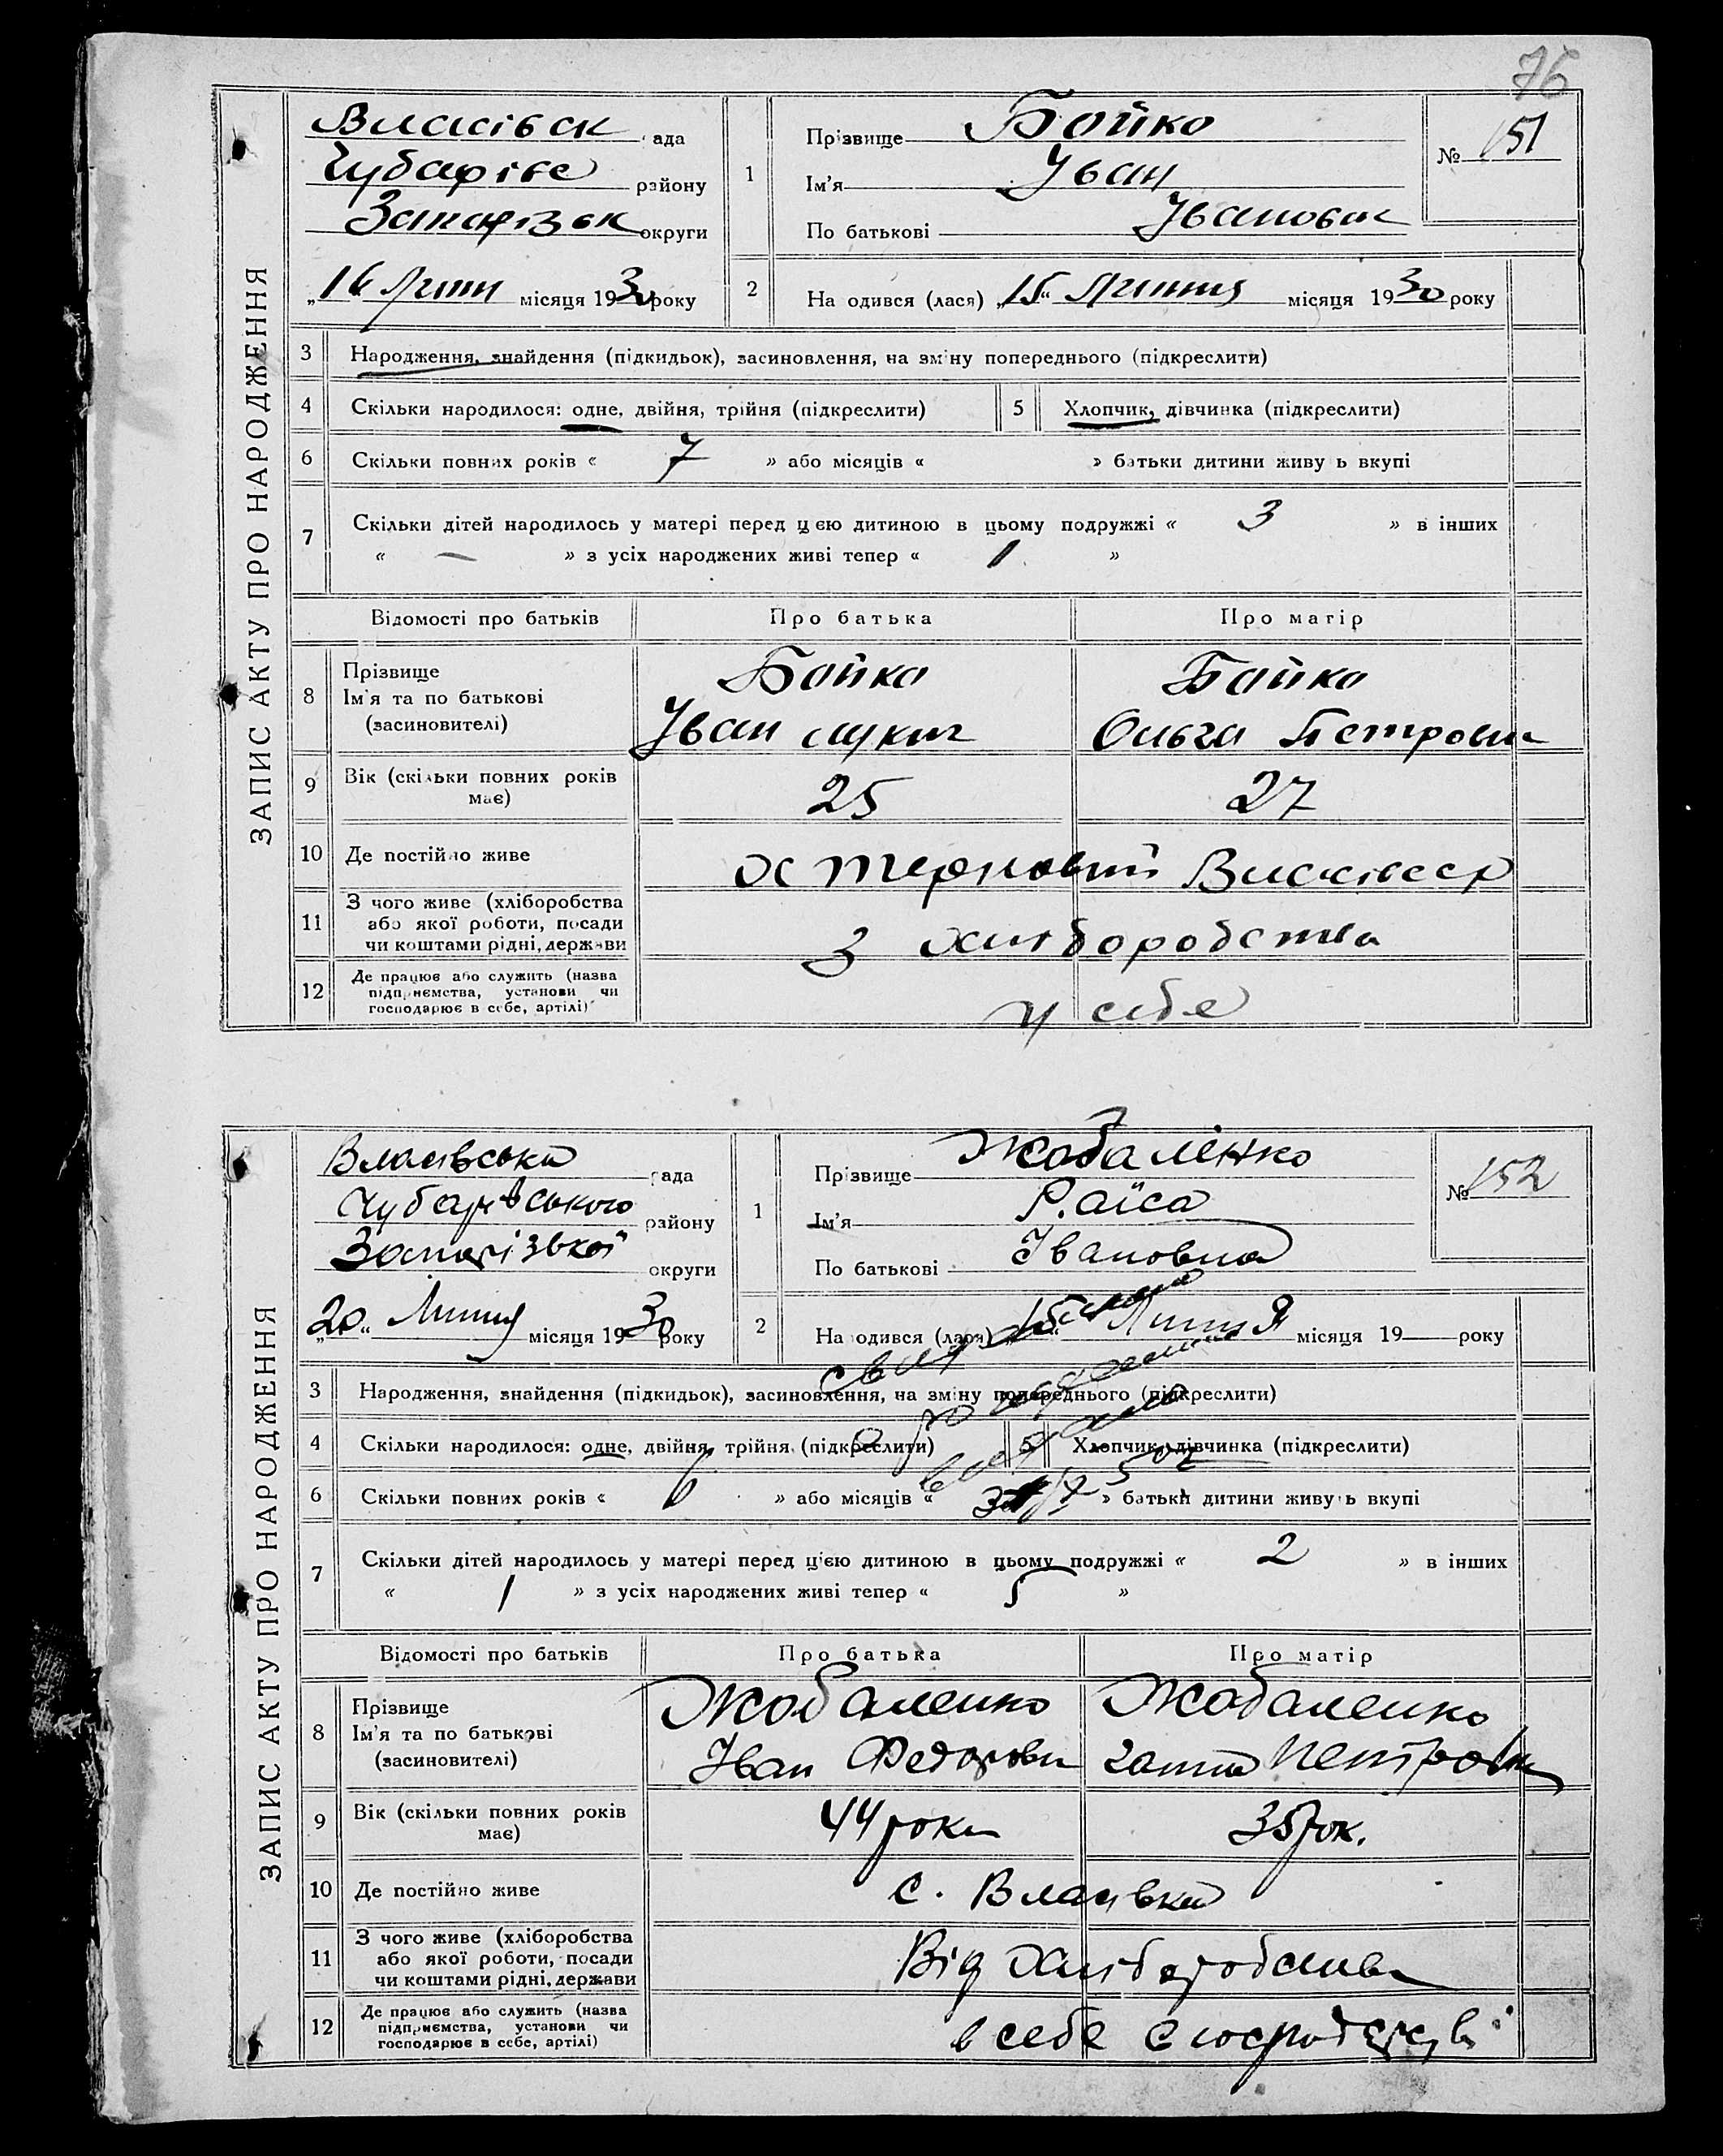 76
ЗАПИС АКТУ ПРО НАРОДЖЕННЯ
Власівск рада
Чубарівс району
Запорізьк округи
„16 Липн місяця 1930 року
1 Прізвище Бойко
Ім'я Іван
По батькові Іванович
№ 151
2 Народився (лася) „15“ Липня місяця 1930 року
3 Народження, знайдення (підкидьок), засиновлення, на зміну попереднього (підкреслити)
4 Скільки народилося: одне, двійня, трійня (підкреслити) 5 Хлопчик, дівчинка (підкреслити)
6 Скільки повних років « 7 » або місяців « » батьки дитини живуть вкупі
7 Скільки дітей народилось у матері перед цією дитиною в цьому подружжі « 3 » в інших
« — » з усіх народжених живі тепер « 1 »
Відомості про батьків Про батька Про матір
8 Прізвище Бойко Бойко
Ім'я та по батькові Іван Лукич Ольга Петровн
(засиновителі)
9 Вік (скільки повних років має) 25 27
10 Де постійно живе х Терновий
11 З чого живе (хліборобства
або якої роботи, посади
чи коштами рідні, держави З хліборобства
12 Де працює або служить (назва
підприємства, установи чи
господарює в себе, артілі) У себе
ЗАПИС АКТУ ПРО НАРОДЖЕННЯ
Власівська рада
Чубарівського району
Запорізької округи
„20“ Липня місяця 1930 року
1 Прізвище Жобаленко
Ім'я Раїса
По батькові Івановна
№ 152
2 Народився (лася) „15“ Липня місяця 19 року
3 Народження, знайдення (підкидьок), засиновлення, на зміну попереднього (підкреслити)
4 Скільки народилося: одне, двійня, трійня (підкреслити) 5 Хлопчик, дівчинка (підкреслити)
6 Скільки повних років « 6 » або місяців « » батьки дитини живуть вкупі
7 Скільки дітей народилось у матері перед цією дитиною в цьому подружжі « 2 » в інших
« 1 » з усіх народжених живі тепер « 5 »
Відомості про батьків Про батька Про матір
8 Прізвище Жобаленко Жобаленко
Ім'я та по батькові Іван Федорови Ганна Петровн
(засиновителі)
9 Вік (скільки повних років має) 44 роки 35 рок.
10 Де постійно живе с. Власівка
11 З чого живе (хліборобства
або якої роботи, посади
чи коштами рідні, держави Від хліборобства
12 Де працює або служить (назва
підприємства, установи чи
господарює в себе, артілі) в себе